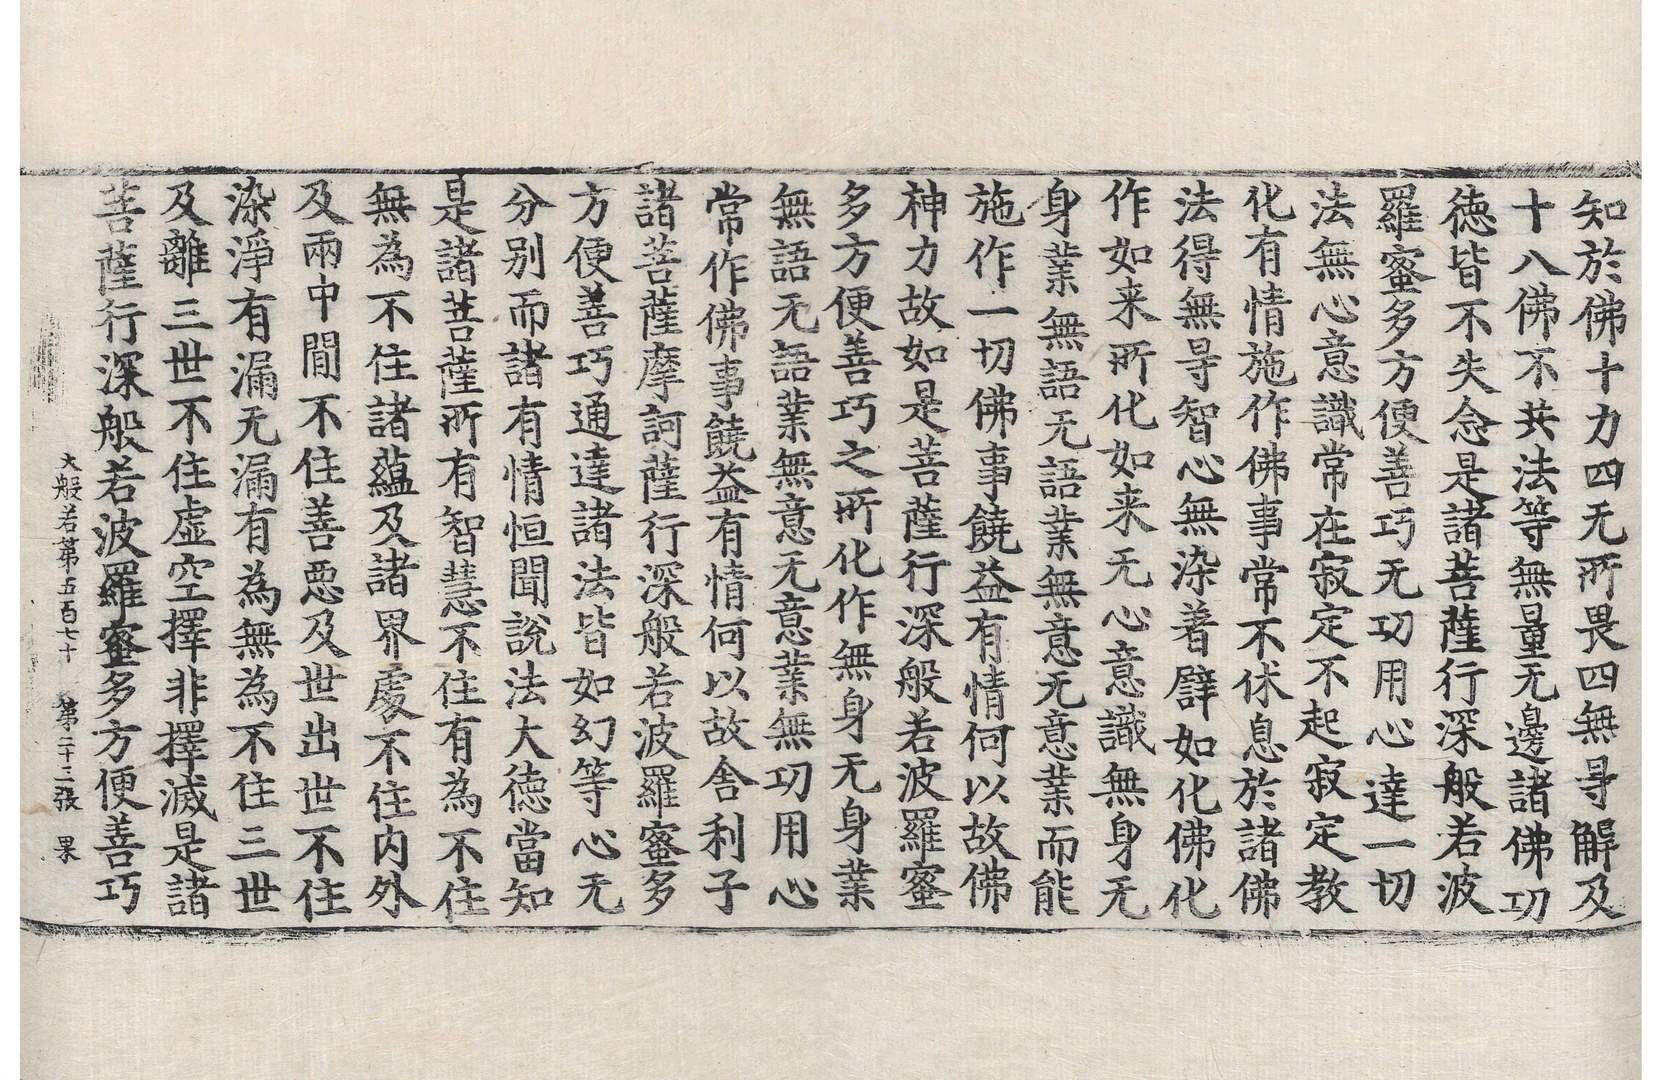 知於佛十力四无所畏四無㝵解及
十八佛不共法等無量无邊諸佛功
徳皆不失念是諸菩薩行深般若波
羅蜜多方便善巧无功用心達一切
法無心意識常在寂定不起寂定教
化有情施作佛事常不休息於諸佛
法得無㝵智心無染著譬如化佛化
作如来所化如来无心意識無身无
身業無語无語業無意无意業而能
施作一切佛事饒益有情何以故佛
神力故如是菩薩行深般若波羅蜜
多方便善巧之所化作無身无身業
無語无語業無意无意業無功用心
常作佛事饒益有情何以故舎利子
諸菩薩摩訶薩行深般若波羅蜜多
方便善巧通達諸法皆如幻等心无
分别而諸有情恒聞說法大徳當知
是諸菩薩所有智慧不住有為不住
無為不住諸蘊及諸界處不住内外
及兩中間不住善惡及世出世不住
染淨有漏无漏有為無為不住三世
及離三世不住虚空擇非擇滅是諸
菩薩行深般若波羅蜜多方便善巧
大般若第五百七十 第二十三張 杲